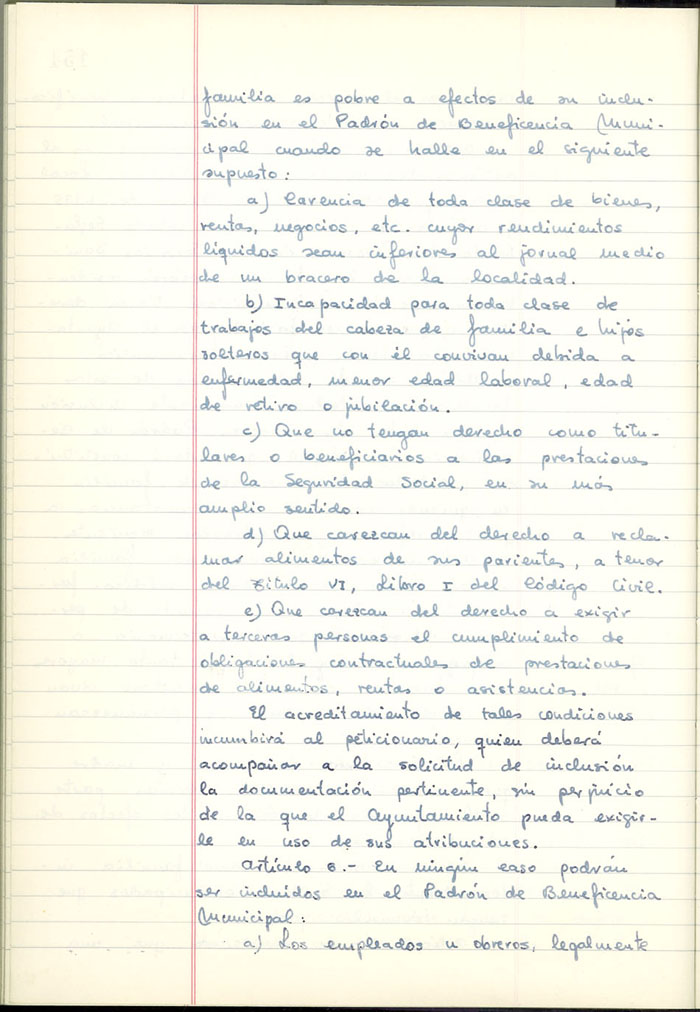 familia es pobre a efectos de su inclu-
sión en el Padrón de Beneficencia Muni-
cipal cuando se halle en el siguiente
supuesto:
a) Carencia de toda clase de bienes,
rentas, negocios, etc. cuyos rendimientos
líquidos sean inferiores al jornal medio
de un bracero de la localidad.
b) Incapacidad para toda clase de
trabajos del cabeza de familia e hijos
solteros que con él convivan debida a
enfermedad, menor edad laboral, edad
de retiro o jubilación.
c) Que no tengan derecho como titu-
lares o beneficiarios a las prestaciones
de la Seguridad Social, en su más
amplio sentido.
d) Que carezcan del derecho a recla-
mar alimentos de sus parientes, a tenor
del Título VI, Libro I del Código Civil.
e) Que carezcan del derecho a exigir
a terceras personas el cumplimiento de
obligaciones contractuales de prestaciones
de alimentos, rentas o asistencias.
El acreditamiento de tales condiciones
incumbirá al peticionario, quien deberá
acompañar a la solicitud de inclusión
la documentación pertinente, sin perjuicio
de la que el Ayuntamiento pueda exigir-
le en uso de sus atribuciones.
Artículo 6.- En ningún caso podrán
ser incluídos en el Padrón de Beneficencia
Municipal:
a) Los empleados u obreros, legalmente